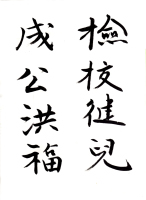 檢校徤兒
成公洪福